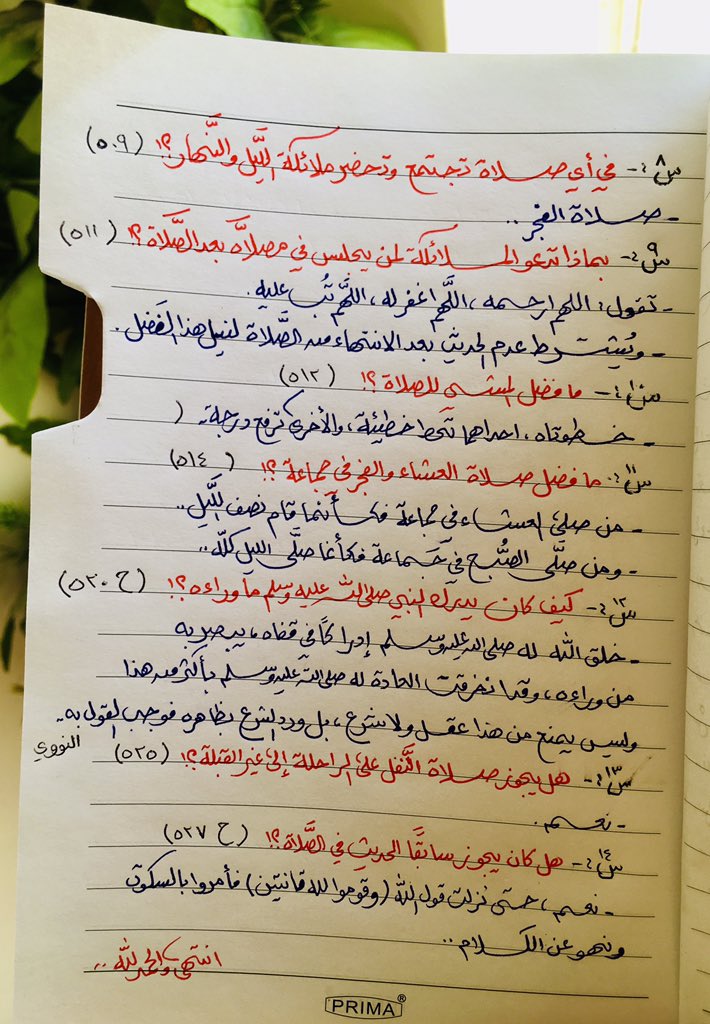 س٨:- في أي صلاة تجتمع وتحضر ملائكة اللَّيل والنَّهار؟! (٥٠٩)
- صلاة الفجر ..
س٩:- بماذا تدعو الملائكة لمن يجلس في مصلاَّه بعد الصَّلاة؟! (٥١١)
- تقول: اللهم ارحمه، اللَّهم اغفر له، اللَّهم تُب عليه.
- ويُشترط عدم الحديث بعد الانتهاء من الصَّلاة لنيل هذا الفَضل.
س١٠:- ما فضل المشي للصلاة؟! (٥١٢)
- خطوتاه، احداهما تحط خطيئة، والأخرى ترفع درجة. (
س١١:- ما فضل صلاة العشاء والفجر في جماعة؟! (٥١٤)
- من صلى العشاء في جماعة فكأنَّما قام نصف اللَّيل..
- ومن صلَّى الصُّبح في جَماعة فكأنما صلَّى الليل كلَّه..
س١٢:- كيف كان يدرك النبي صلى الله عليه وسلم ما وراءه؟! (ح ٥٢٠)
- خلق الله له صلى الله عليه وسلم إدراكًا في قفاه، يبصر به
من وراءه، وقد انخرقت العادة له صلى الله عليه وسلم بأكثر من هذا
وليس يمنع من هذا عقل ولا شرع، بل ورد الشرع بظاهره فوجب القول به.
النووي
س١٣:- هل يجوز صلاة النَّفل على الراحلة إلى غير القبلة؟! (٥٢٥)
- نعم.
س١٤:- هل كان يجوز سابقًا الحديث في الصَّلاة؟! (ح ٥٢٧)
- نعم، حتى نزلت قول الله (وقوموا لله قانتين) فأمروا بالسكوت
ونهو عن الكلام..
انتهى والحمد لله ..
PRIMA®